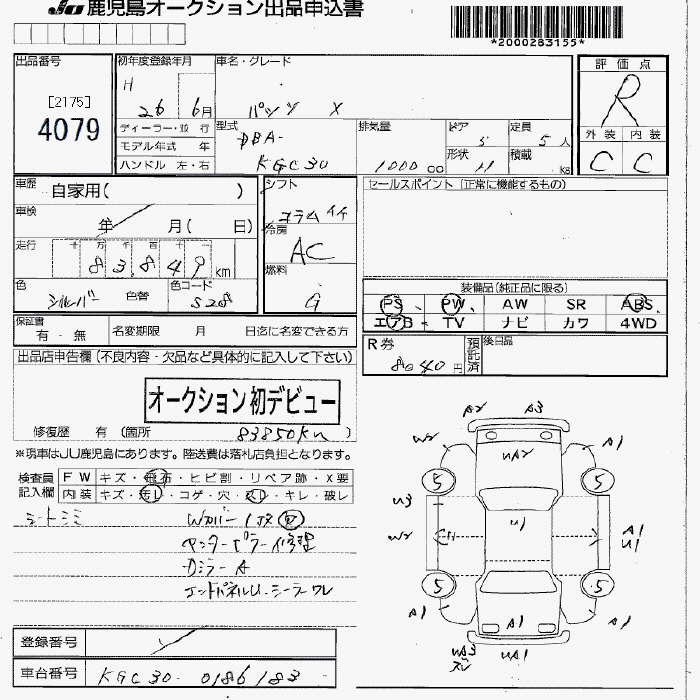 JU 鹿児島オークション出品申込書
*2000283155*
出品番号
[2175]
4079
初年度登録年月
H 26 6月
車名・グレード
パッソ X
ディーラー・並行
モデル年式 年
ハンドル 左・右
型式
DBA-
KGC30
排気量
1000 cc
ドア 5
形状 H
定員 5 人
積載 kg
評価点
R
外装 内装
C C
車歴 自家用( )
車検 年 月( 日)
走行 十 万 千 百 十 一
8 3,8 4 9 km
色 シルバー 色替
色コード S28
シフト コラム
冷房 AC
燃料 G
セールスポイント (正常に機能するもの)
装備品(純正品に限る)
PS PW AW SR ABS
エアB TV ナビ カワ 4WD
保証書 有・無
名変期限 月 日迄に名変できる方
R券 8040円
預託済
後日品
出品店申告欄(不良内容・欠品など具体的に記入して下さい)
オークション初デビュー
修復歴 有(箇所 83850km )
※現車はJU鹿児島にあります。陸送費は落札店負担となります。
検査員記入欄
FW キズ・飛石・ヒビ割・リペア跡・X要
内装 キズ・・コゲ・穴・・キレ・破レ
シートシミ
Wカバー
センターピラー修理
A
エンドパネルU・シーラーワレ
A2 A3
W2 UA2 A1
5 5
U3 U1
W2 A1
U1
5 5
A1 A1 A1
UA3 UA1
登録番号
車台番号 KGC30-0186183